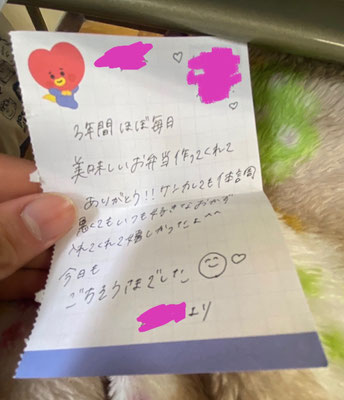 ♡
♡
3年間ほぼ毎日
美味しいお弁当作ってくれて
ありがとう!!ケンカしても体調
悪くてもいつも好きなおかず
入れてくれて嬉しかったよ^^
今日も
ごちそうさまでした ♡
より